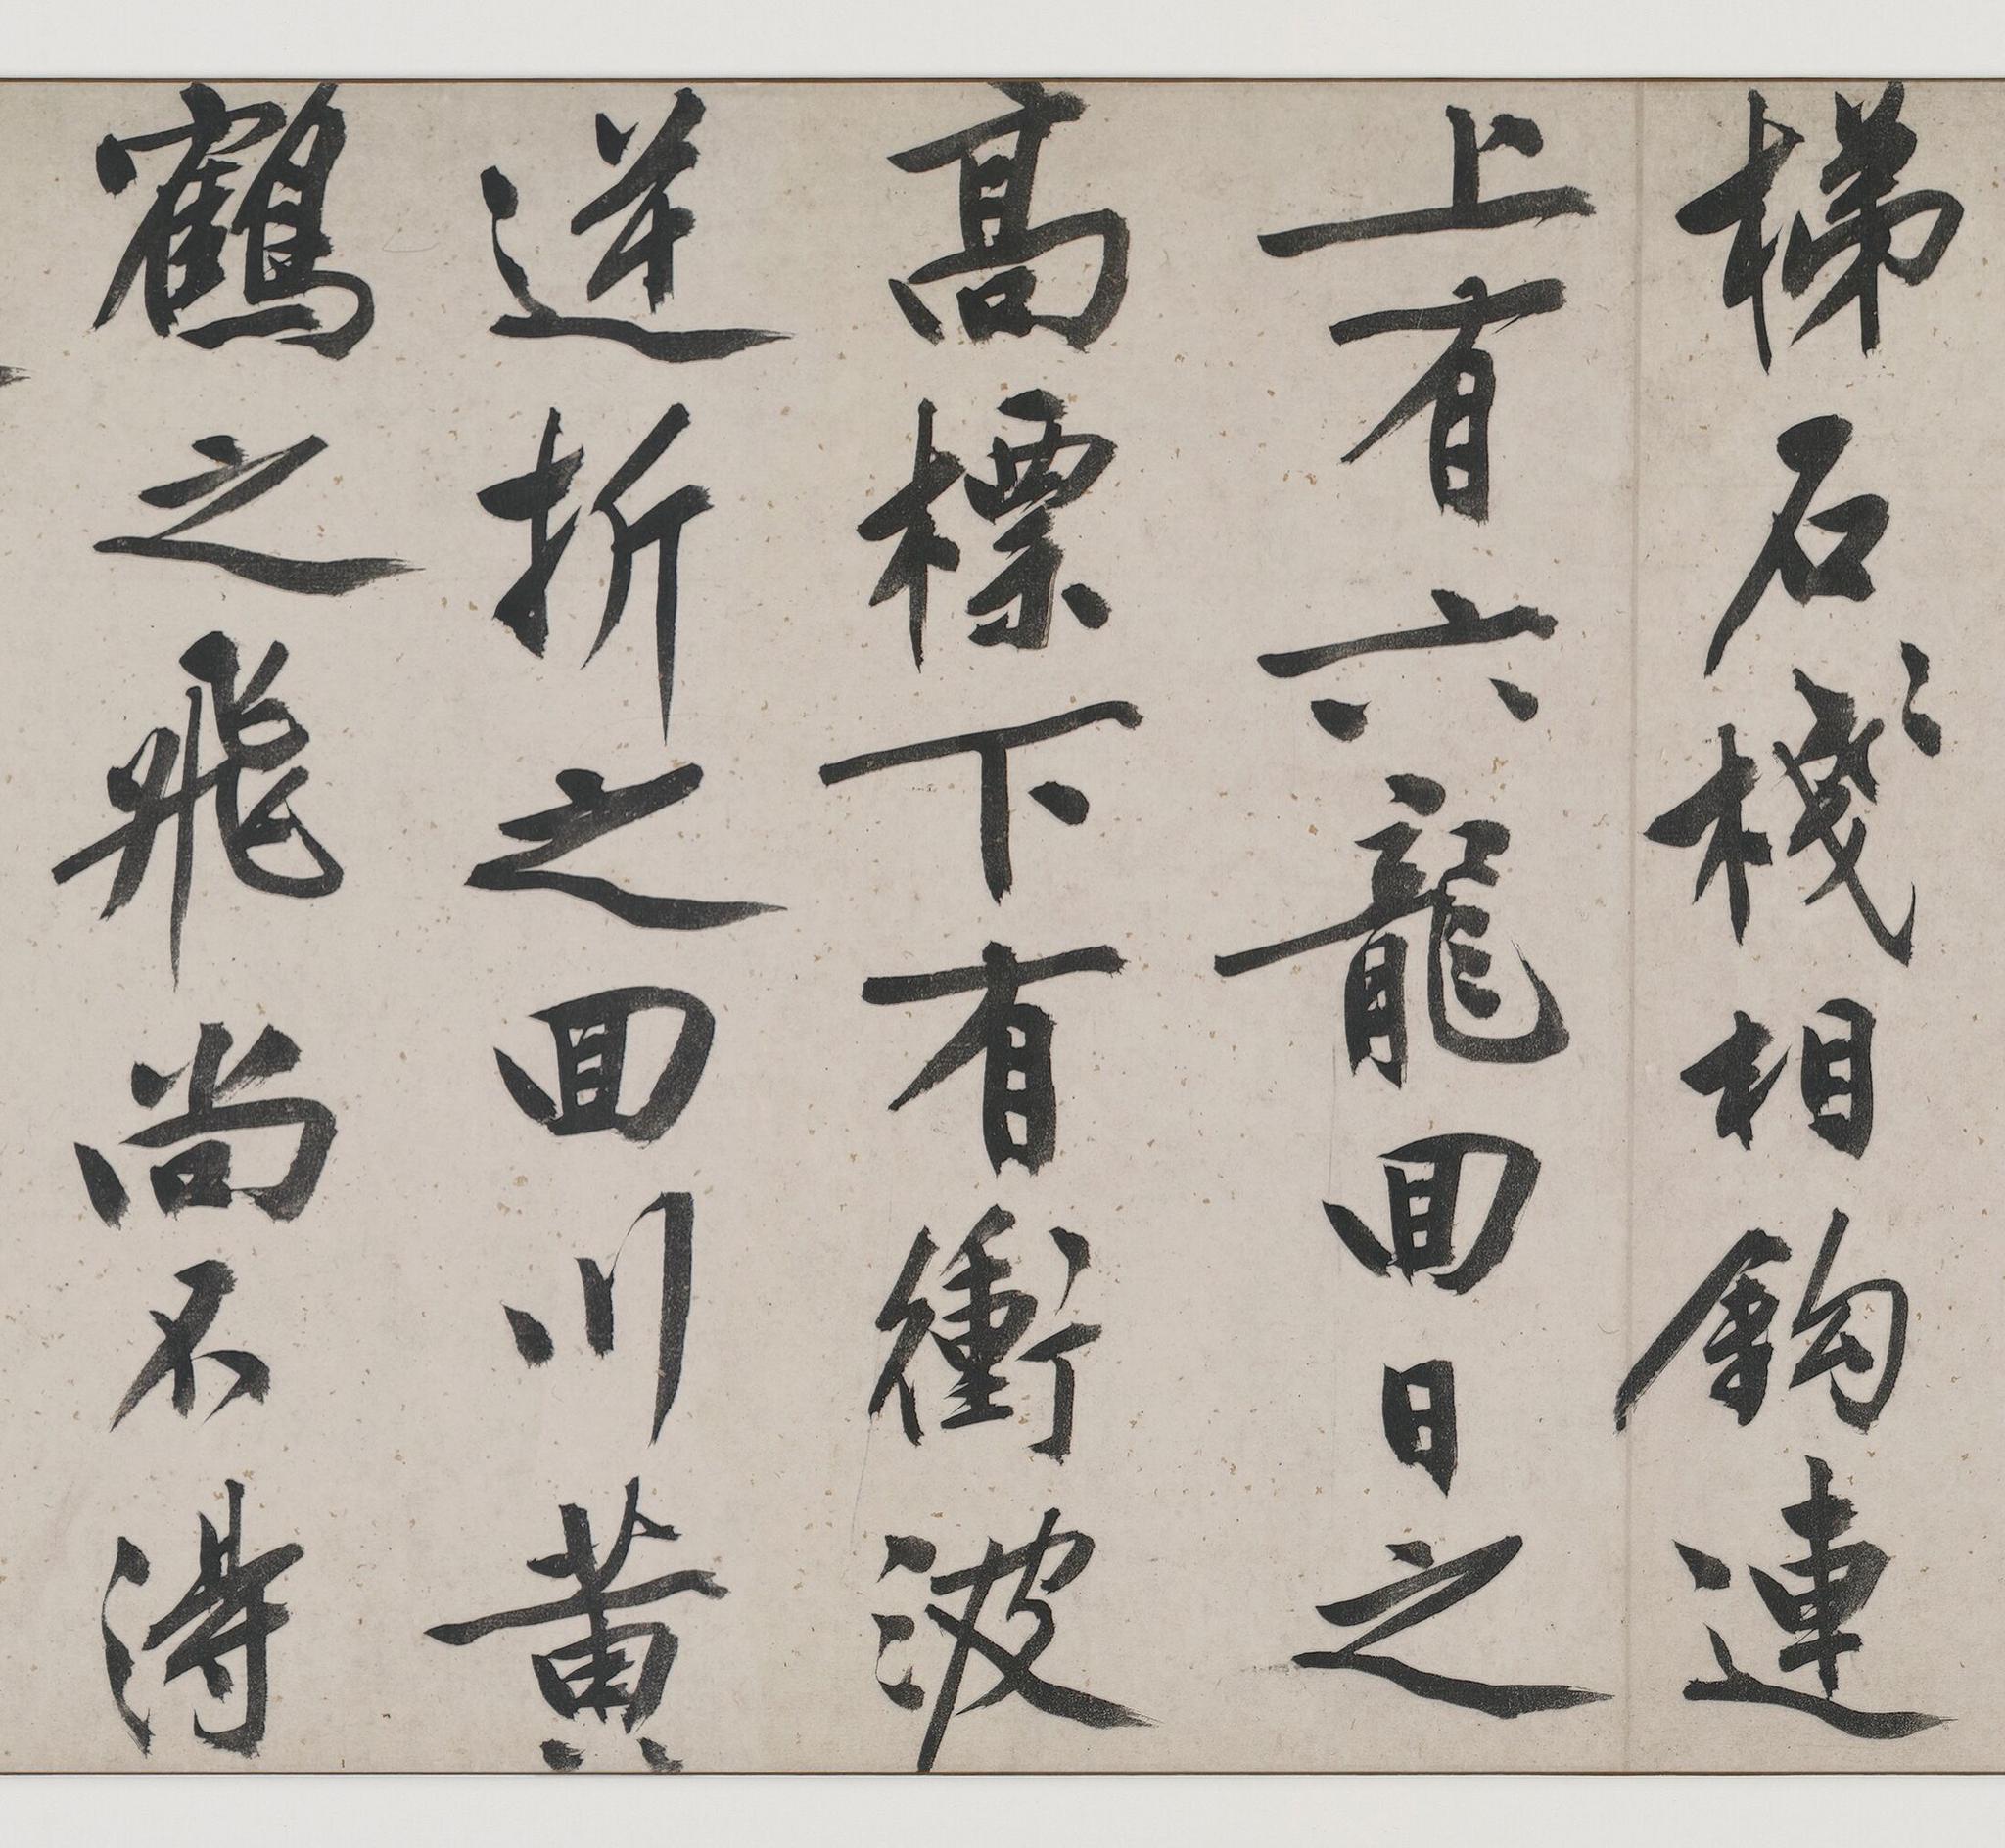 梯石棧相鈎連
上有六龍回日之
高標下有衝波
逆折之回川黃
鶴之飛尚不得